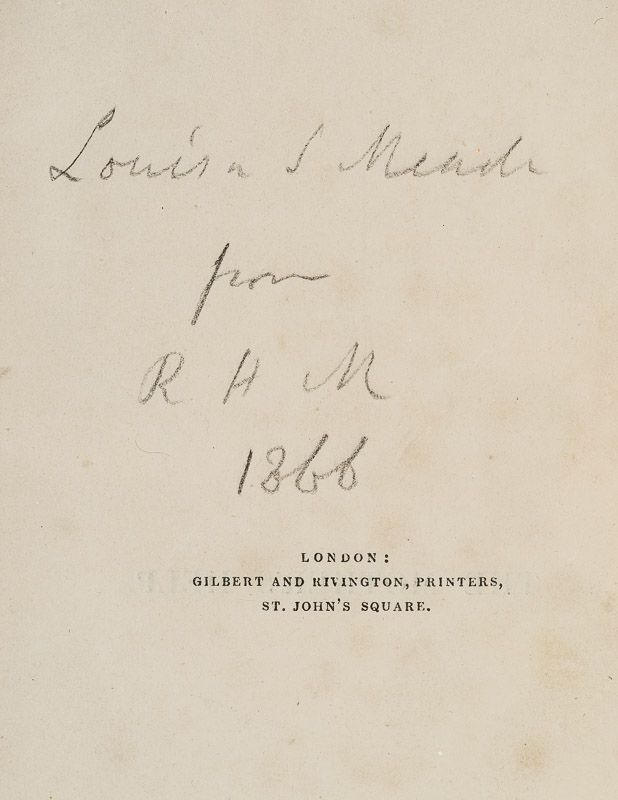 Louisa S Meade
from
R H M
1866
LONDON:
GILBERT AND RIVINGTON, PRINTERS,
ST. JOHN'S SQUARE.